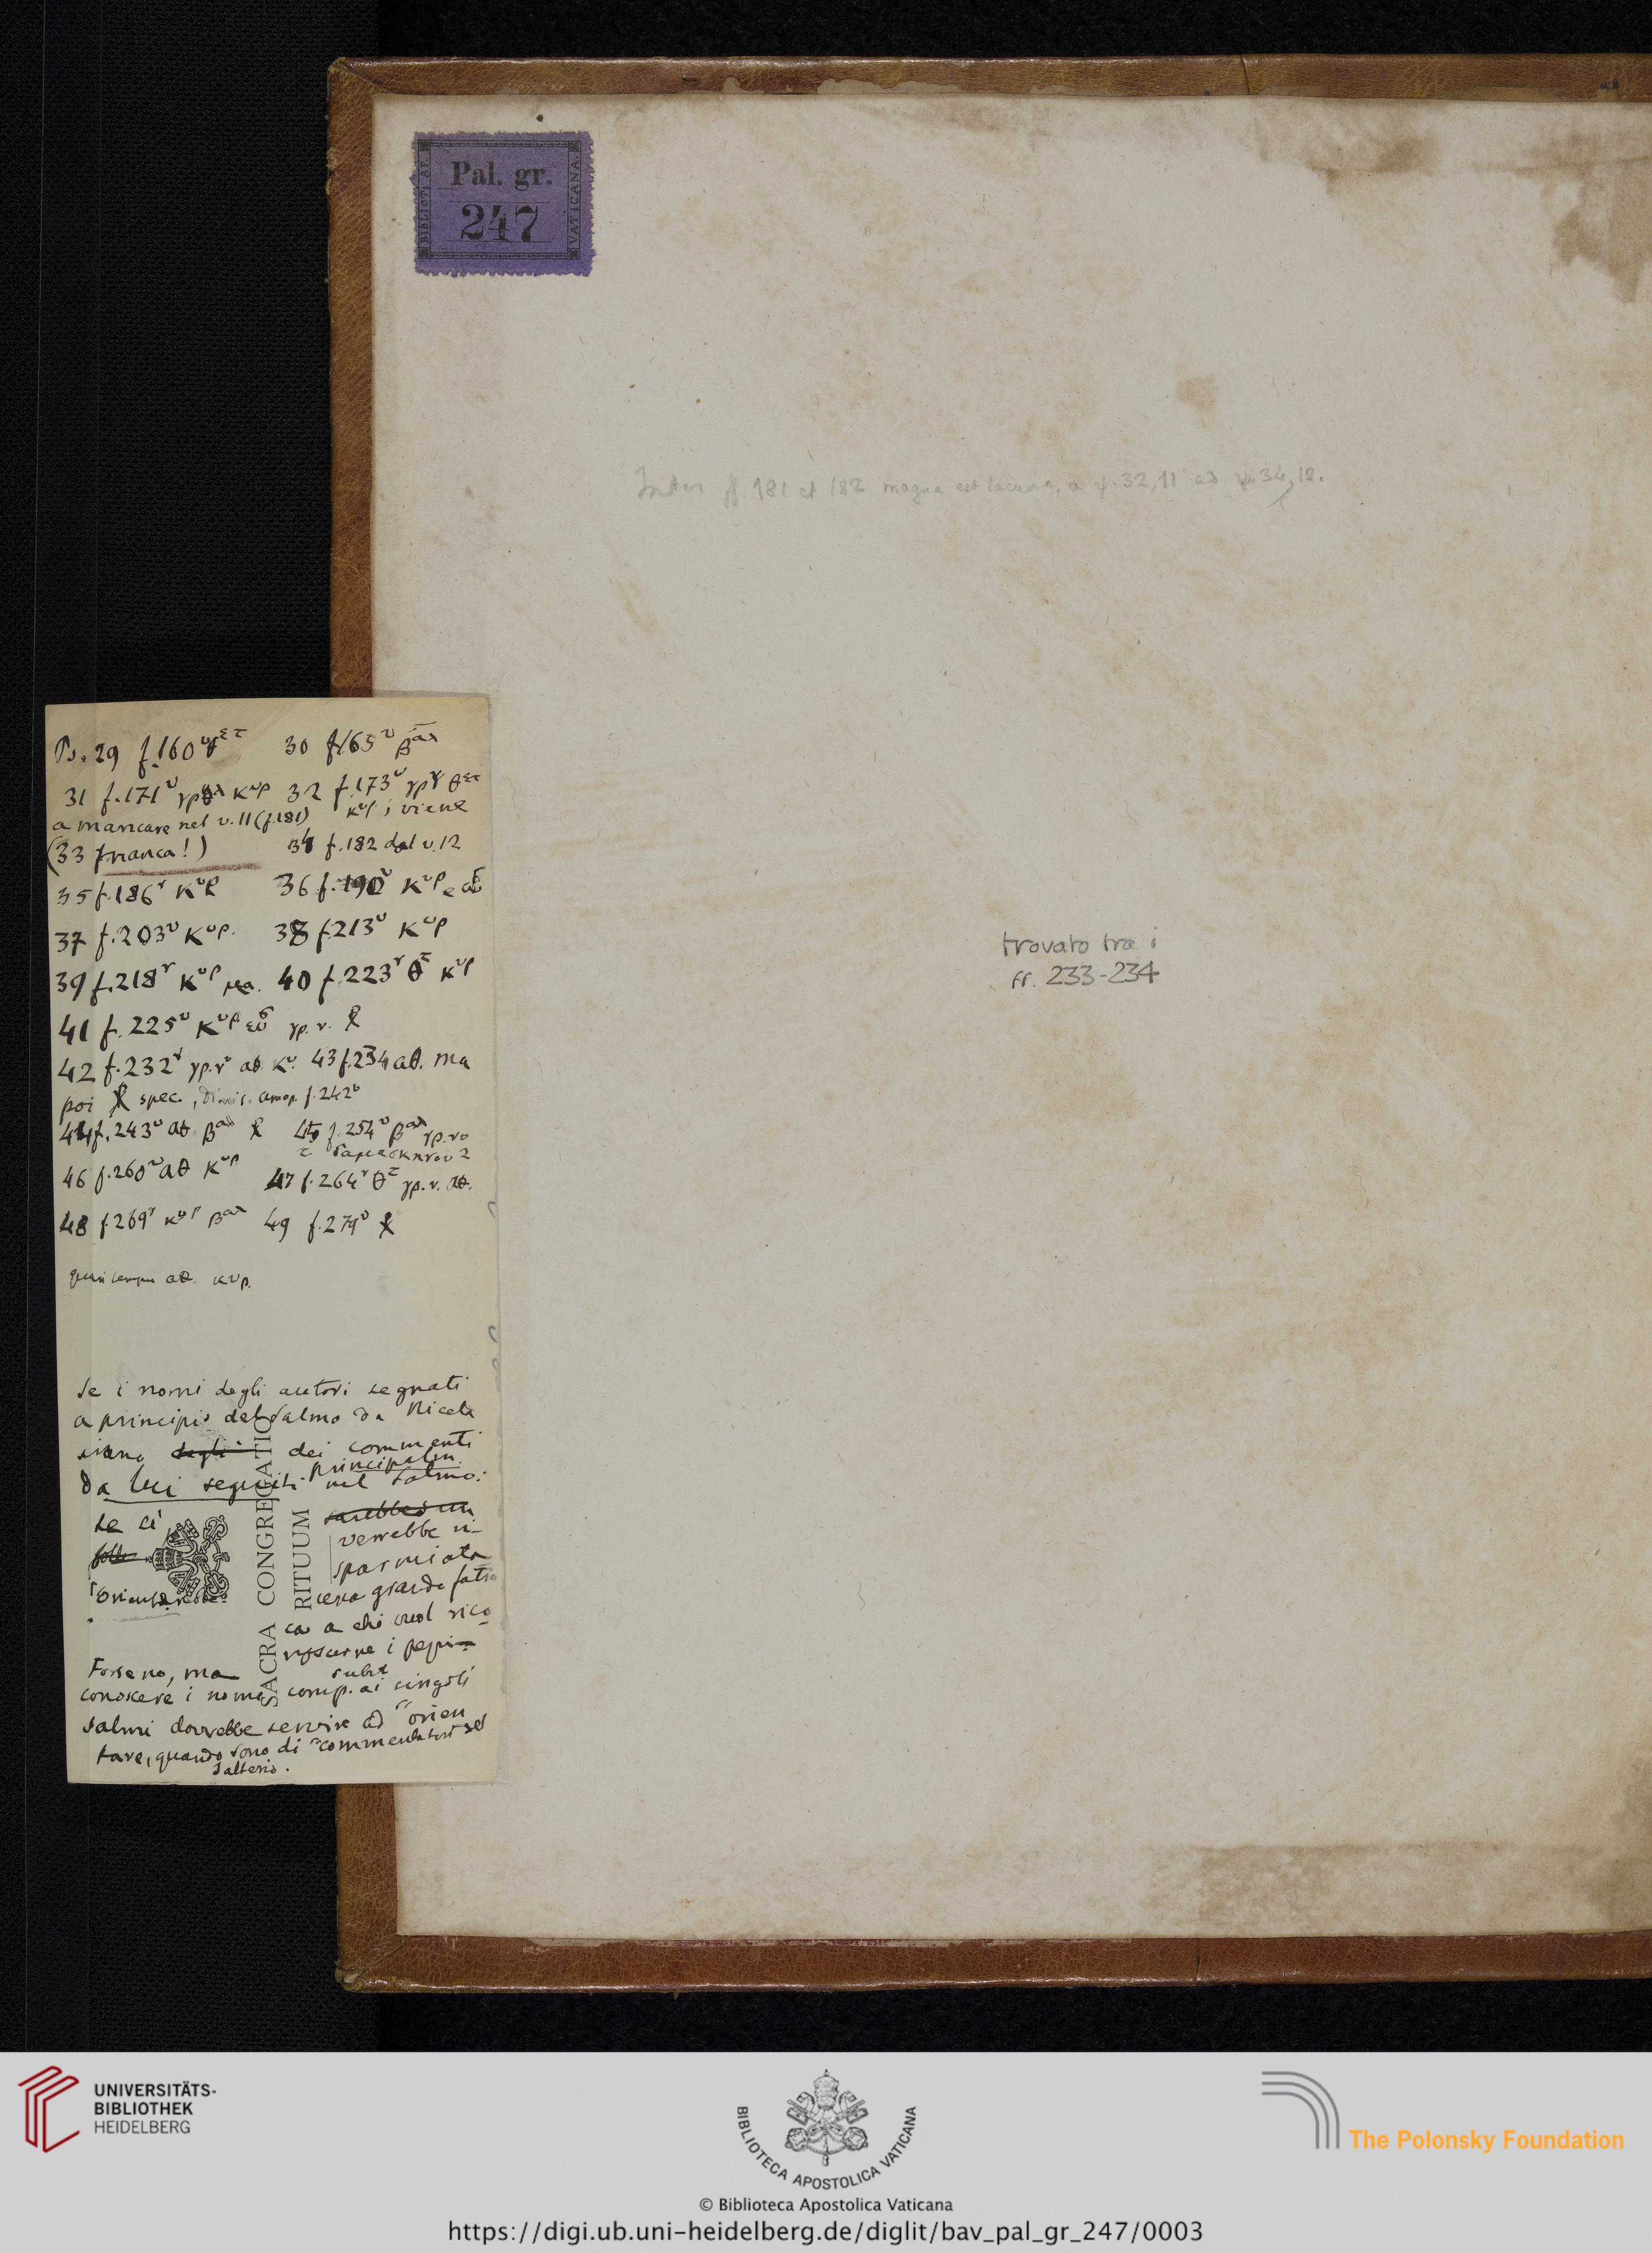 Pal. gr.
247
BIBLIOT. AP.
VATICANA
Inter ff. 181 et 182 magna est lacuna, a ψ. 32,11 ad ψ. 34,12.
trovato tra i
ff. 233-234
Ps. 29 f. 160ᵛ 30 f. 165ᵛ βασ
31 f. 171ᵛ κυρ 32 f. 173ᵛ
a mancare nel v. 11 (f. 181) κυρ; viene
(33 manca!) 34 f. 182 dal v. 12
35 f. 186ʳ κυρ 36 f. 190ᵛ κυρ e
37 f. 203ᵛ κυρ. 38 f. 213ᵛ κυρ
39 f. 218ʳ κυρ 40 f. 223ʳ θτ κυρ
41 f. 225ᵛ κυρ ευσ γρ. ν.
42 f. 232ʳ γρ. ν αθ. κυ. 43 f. 234 αθ. ma
poi spec. f. 242ᵛ
44 f. 243ᵛ αθ. βασ 45 f. 254ᵛ βασ γρ. νυ
δαμασκηνου 2
46 f. 260ᵛ αθ κυρ 47 f. 264ʳ θτ γρ. ν. αθ.
48 f. 269ʳ κυρ βασ 49 f. 279ᵛ
quasi sempre αθ. κυρ.
Se i nomi degli autori segnati
a principio del Salmo da Niceta
siano degli dei commenti
da lui seguiti principalm. nel Salmo:
se ci
sarebbe un
verrebbe ri-
sparmiata
una grande fati
ca a chi vuol rico
noscerne i
Forse no, ma
conoscere i nomi comp. ai singoli
salmi dovrebbe servire ad "orien
tare, quando sono di "commentatori" del
Salterio.
SACRA CONGREGATIO
RITUUM
UNIVERSITÄTS-
BIBLIOTHEK
HEIDELBERG
BIBLIOTECA APOSTOLICA VATICANA
The Polonsky Foundation
© Biblioteca Apostolica Vaticana
https://digi.ub.uni-heidelberg.de/diglit/bav_pal_gr_247/0003